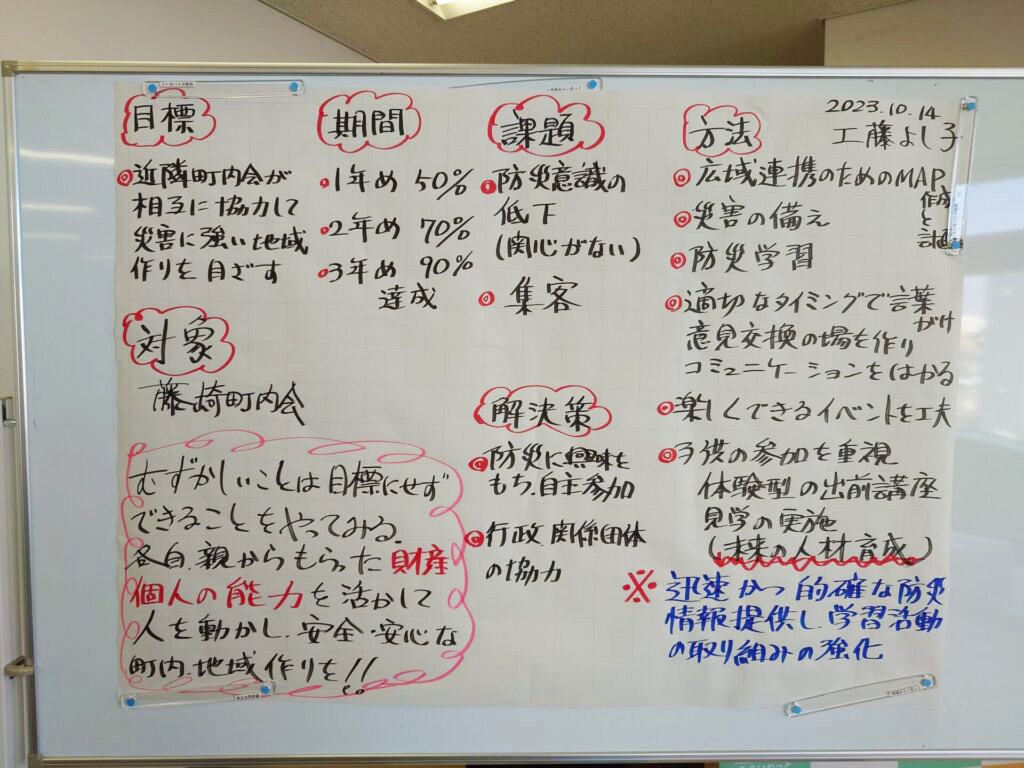 2023.10.14
工藤よし子
目標
◎近隣町内会が
相互に協力して
災害に強い地域
作りを目ざす
対象
藤崎町内会
むずかしいことは目標にせず
できることをやってみる.
各自.親からもらった財産
個人の能力を活かして
人を動かし.安全・安心な
町内.地域作りを!!
期間
◎1年め 50%
◎2年め 70%
◎3年め 90%
達成
課題
◎防災意識の
低下
(関心がない)
◎集客
解決策
◎防災に興味を
もち.自主参加
◎行政.関係団体
の協力
方法
◎広域連携のためのMAP
作成
と
◎災害の備え
◎防災学習
◎適切なタイミングで言葉
がけ
意見交換の場を作り
コミュニケーションをはかる
◎楽しくできるイベントを工夫
◎子供の参加を重視
体験型の出前講座
見学の実施
(未来の人材育成)
※迅速かつ的確な防災
情報提供し.学習活動
の取り組みの強化